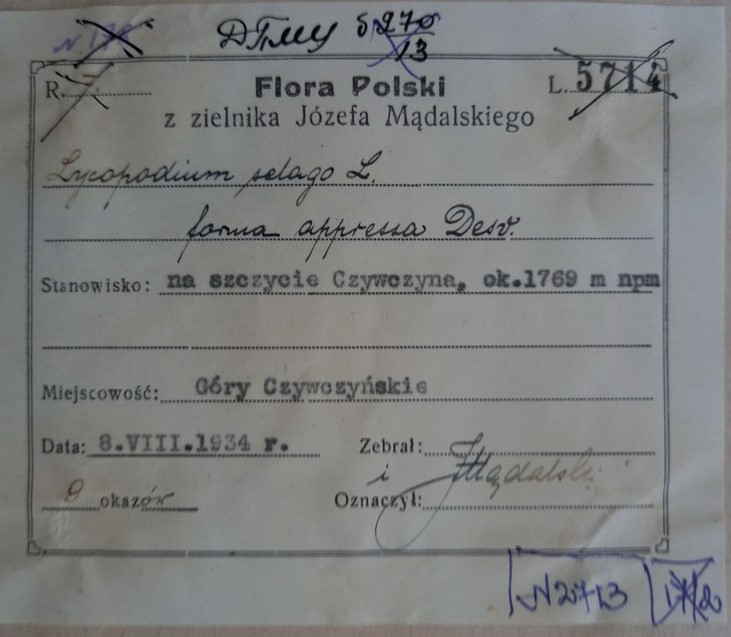 N 178
ДПМУ б 270
13
R. L. 5714
Flora Polski
z zielnika Józefa Mądalskiego
Lycopodium selago L.
forma appressa Desv.
Stanowisko: na szczycie Czywczyna, ok.1769 m npm
Miejscowość: Góry Czywczyńskie
Data: 8.VIII.1934 r. Zebrał:
i JMądalski
9 okazów Oznaczył:
N2713